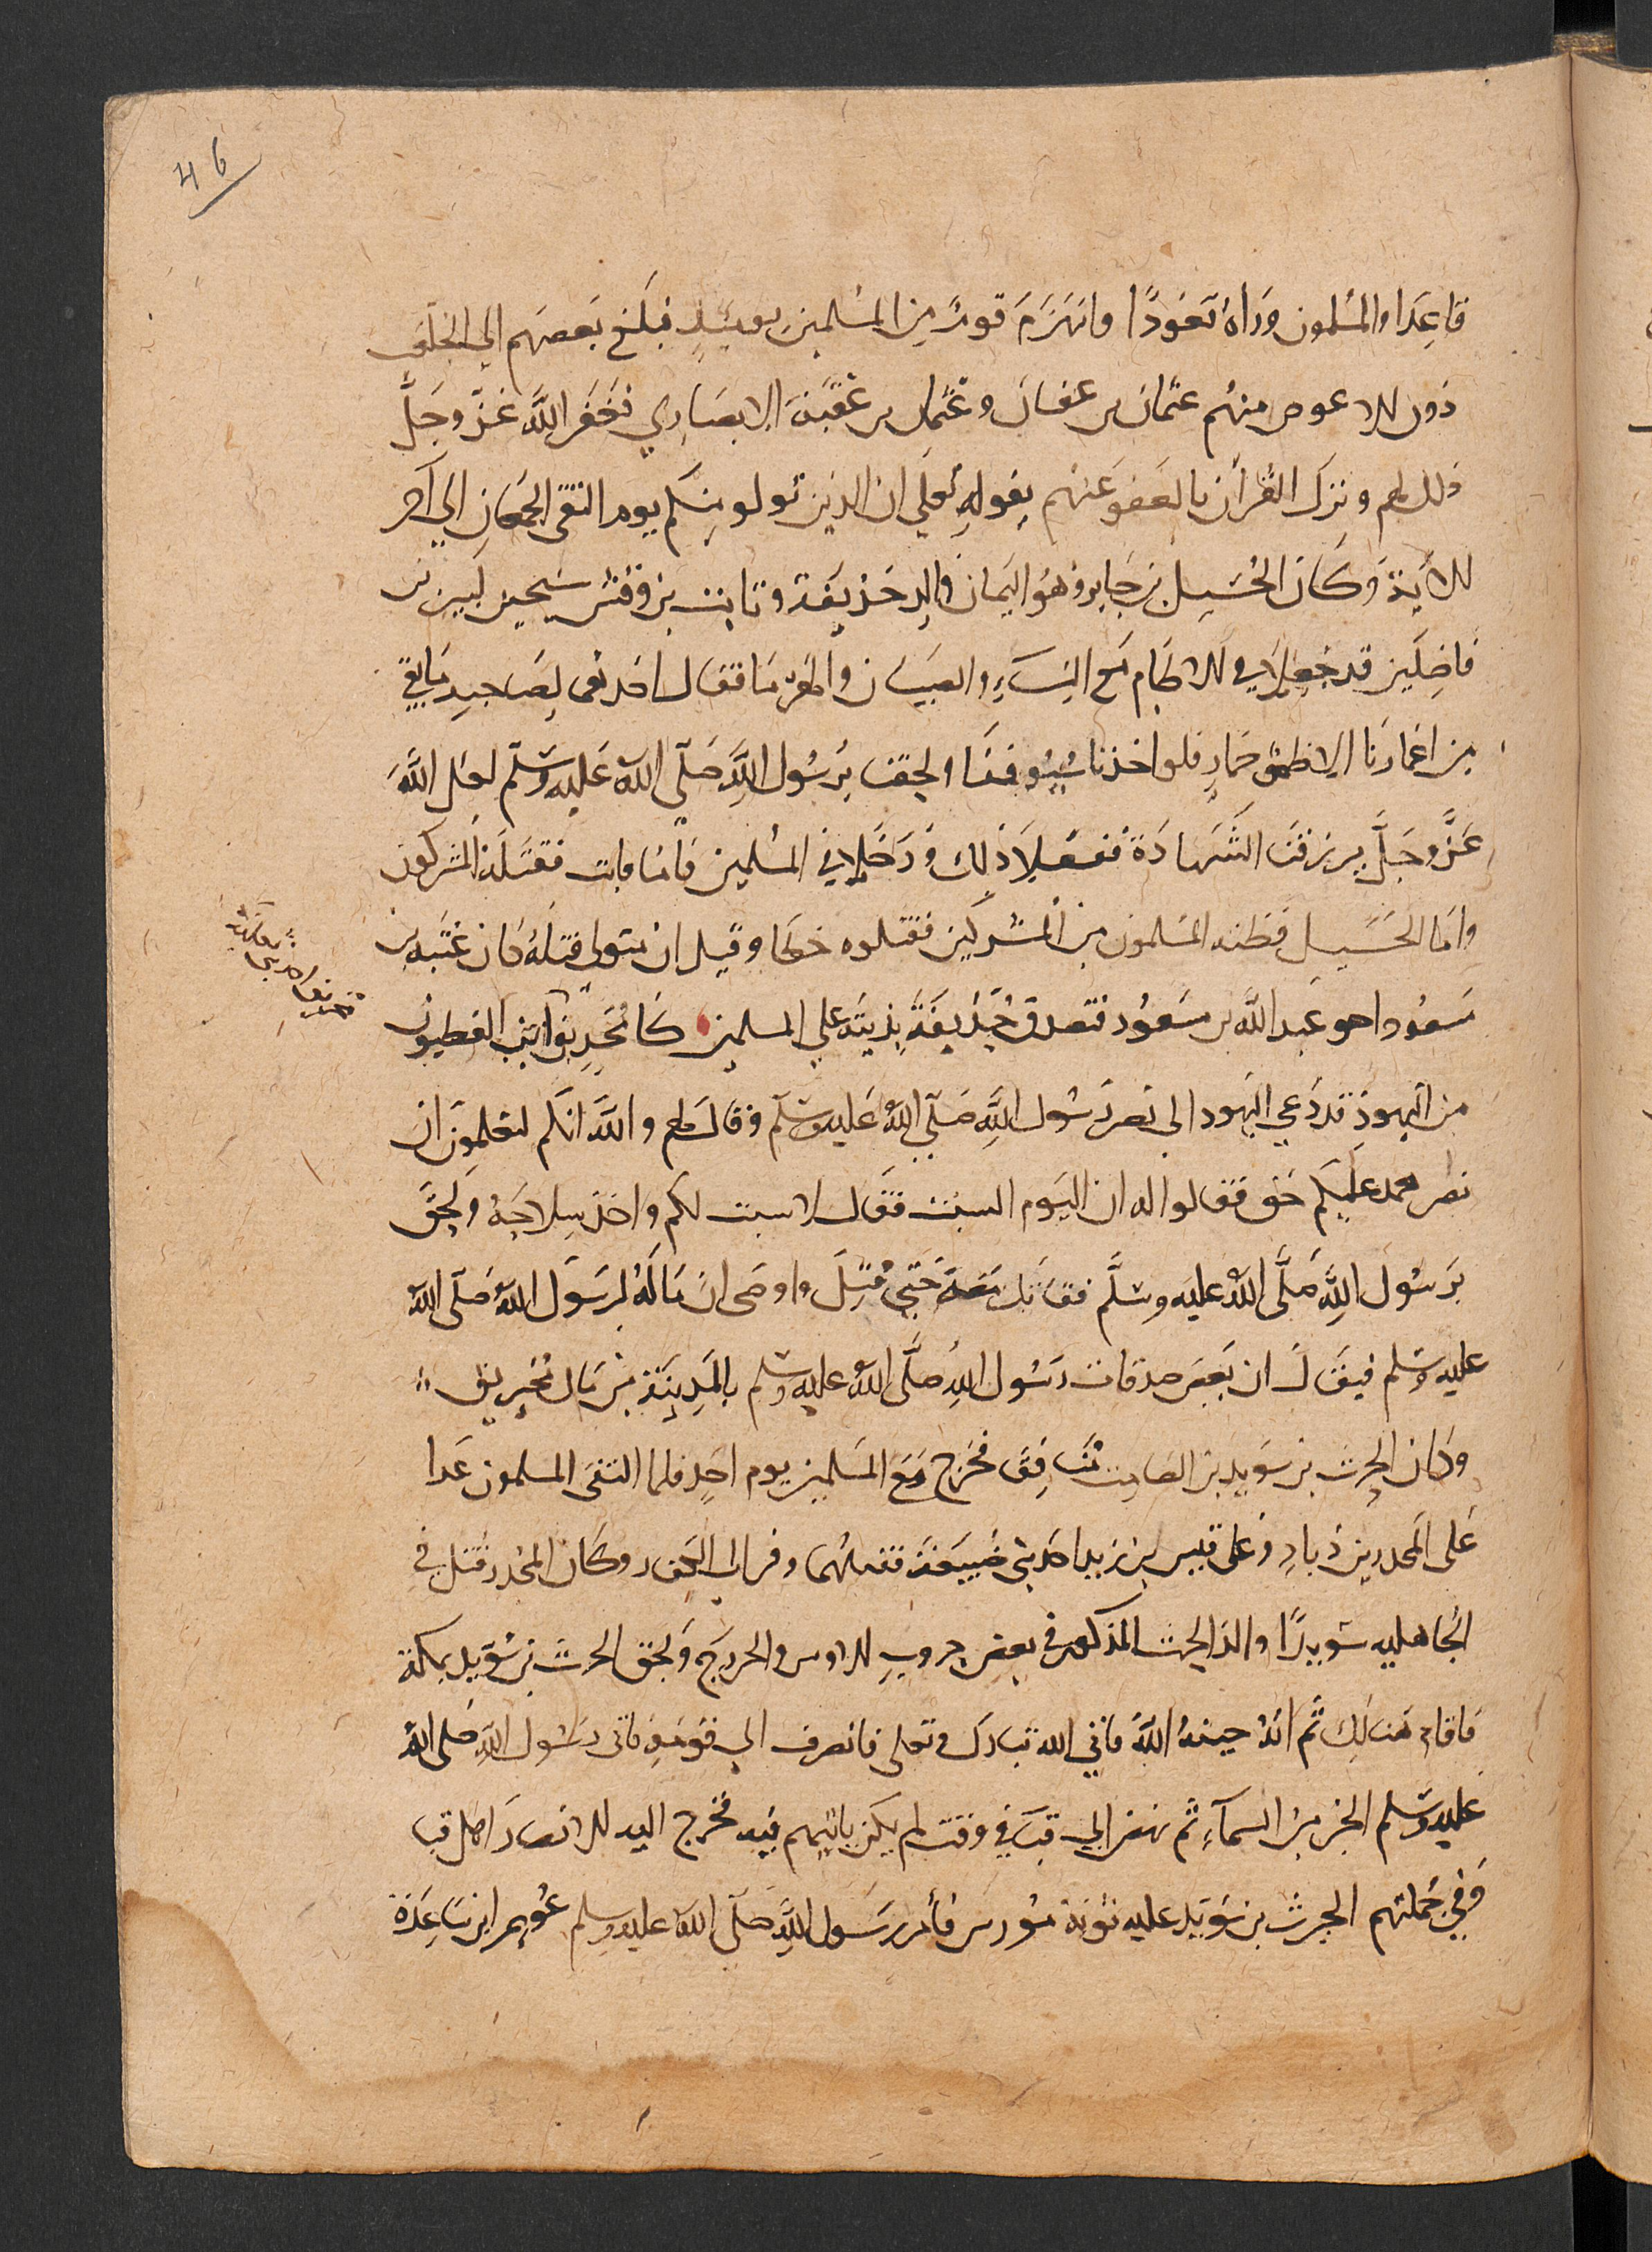 46
قاعِدا والمسلمون وراهُ قعُودًا وانهزَمَ قومٌ مِن المسلمين يوميئذٍ فبلغ بَعضهم الي الجلعب
دون الاعوص منهم عثمان بن عفان وعثمان بن عقبَة الانصَاري فغفَر اللَّه عَزّ وجَلَّ
ذلك لهم ونزل القرآن بالعَفو عَنهم بقولهِ تعلي ان الذين تولو منكم يوم التقي الجمعان الي آخر
الآية وَكان الحُسَيل بن جَابر وهُو اليَمان والِد حُذيفَة وثابت بن وقش شيخين كبيرين
فاضِلَين قد جعِلا في الاطام مَع النِسَاءِ والصبيَان والهرما فقال احدهمى لِصَاحبهِ مَا بقي
من اعمارنا الا ظمؤ حمارٍ فلو اخذنا سُيُوفنا ولحقنا برَسُول اللَّهِ صَلّى اللهُ عَليه وسَلّم لعَل اللَّهَ
عَزَّ وجَلَّ يرزقنا الشَّهادَةَ ففعَلاَ ذلك وَدَخلا في المسلمين فاما ثابت فقتَله المشركون
وامّا الحُسَيل فظنه المسلمون من المشركين فقتلوه خطا وقيل ان متولي قتلهُ كان عتبه بن
مَسعُود اخو عَبد اللَّه بن مسَعوُد فتصدق حُذيفَة بدِيَته علي المسلمين كان مُخَيريق احد بني الفطيون
من اليهودِ قد دَعي اليهود الى نصر رَسُول اللَّهِ صَلّي اللهُ عَليه وسَلّم وقال لهم واللَّه انكم لتعلمون ان
نصر محمد عليكم حَق فقالوا له ان اليَوم السبت فقال لا سبت لكم واخذ سِلاحَهُ ولحِقَ
برَسُول اللَّهِ صَلَّى اللهُ عليه وسَلَّم فقاتل مَعهُ حَتي قُتِلَ واوصى ان مَا لهُ لرسَول اللهِ صَلّى اللهُ
عليه وسَلم فيقَال ان بَعض صدقات رَسُول اللهِ صَلَّى اللهُ عليه وسَلم بالمَدِينَة من مَال مُخيريق
وكان الحرث بن سوَيد بن الصَامِت مُنَافِق فخرج مَعَ المسَلمين يوم احَدٍ فلما التقىَ المسلمون عَدا
عَلى المجدر بن ذيادِ وَعلى قيس بن زيد احَد بني ضُبيعَة فقتلهُما وفر الي الكفار وكان المجدر قتل في
الجَاهليه سُويدًا والد الحرث المذكور في بعض حروبِ الاوس والخزرج ولحق الحرث بن سُوَيد بمكة
فاقام هُنالِك ثم انه حينهُ اللَّهُ فاتي الله تبارك وتعلى فانصرف الي قومِهِ فاتى رسُول اللَّهِ صَلى اللهُ
عليه وسَلم الخبر من السمآءِ ثم نهض الي قباء في وقت لم يكن يأتيهم فيه فخرج اليه الانصَار اهل قبا
وَفي جُملتهم الحرث بن سُوَيد عليه ثوَبَة مُورس فأمر رسَول اللَّهِ صَلّى اللهُ عليه وسِلم عُويمر ابن سَاعِدَة